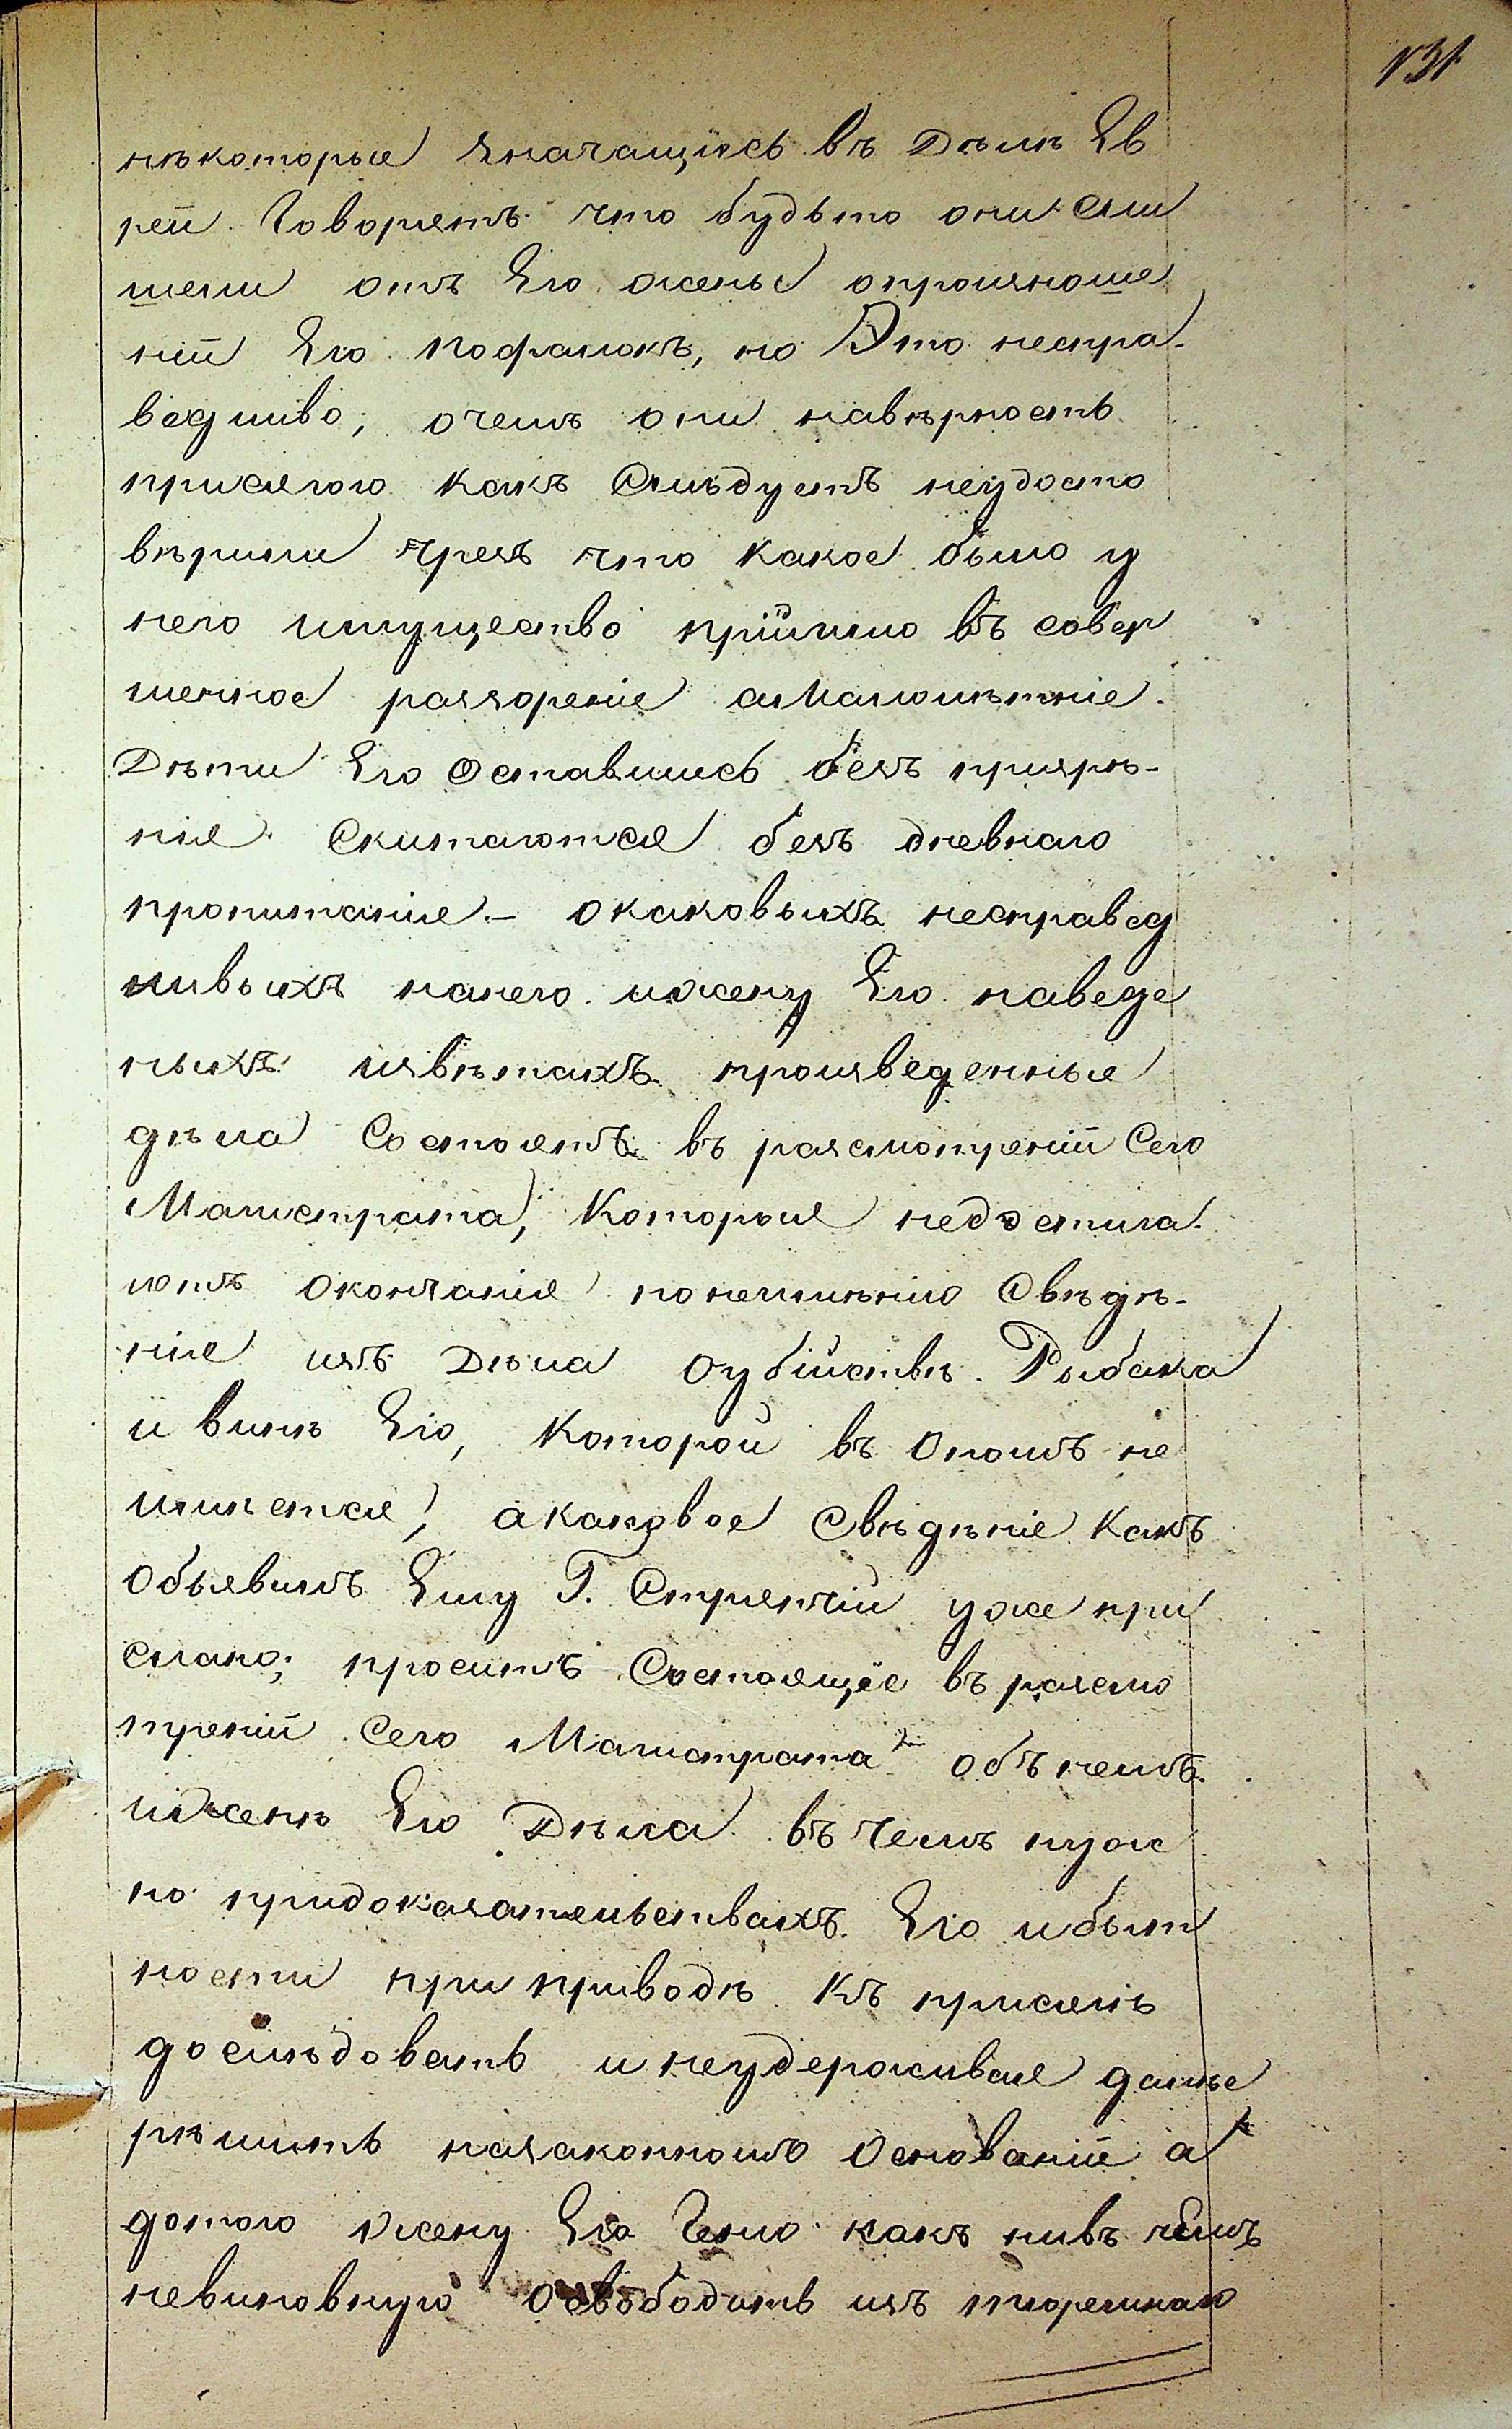 131
нѣкоторые значащіесь въ Дѣлѣ Ев
реи. Говорятъ что будьто они слы
шели отъ Его жены опроизноше
ніи Его Пофалокъ, но Это неспра-
ведливо; очемъ они навѣрность
присягою какъ Слѣдуетъ неудосто
вѣрили чрезъ что какое было у
него имущество прійшло въ совер
шенное раззореніе а Малолѣтніе
Дѣти Его Оставшись безъ призрѣ-
нія Скитаются безъ дневнаго
пропитанія.- о каковыхъ несправед
ливыхъ нанего ижену Его наведе
ныхъ извѣтахъ произведенные
дѣла Состоятъ въ разсмотреніи Сего
Магистрата, Которыя недостига-
ютъ окончанія понеимѣнію Свѣдѣ-
нія изъ Дѣла оубійствѣ Рыбака
и винѣ Его, Которой въ Ономъ не
имѣется, а каковое Свѣдѣніе Какъ
Объявилъ Ему Г. Стряпчій уже при
слано; проситъ Состоящіе въ разсмо
треніи Сего Магистрата объ немъ
иженѣ Его Дѣла въ чемъ нуж
но придоказательствахъ Его и быт
ности при приводѣ Къ присягѣ
дослѣдовать и неудерживая далѣе
рѣшить назаконномъ Основаніи а
дотого жену Его Геню какъ нивъ чемъ
невиновную Освободить изъ тюремнаго